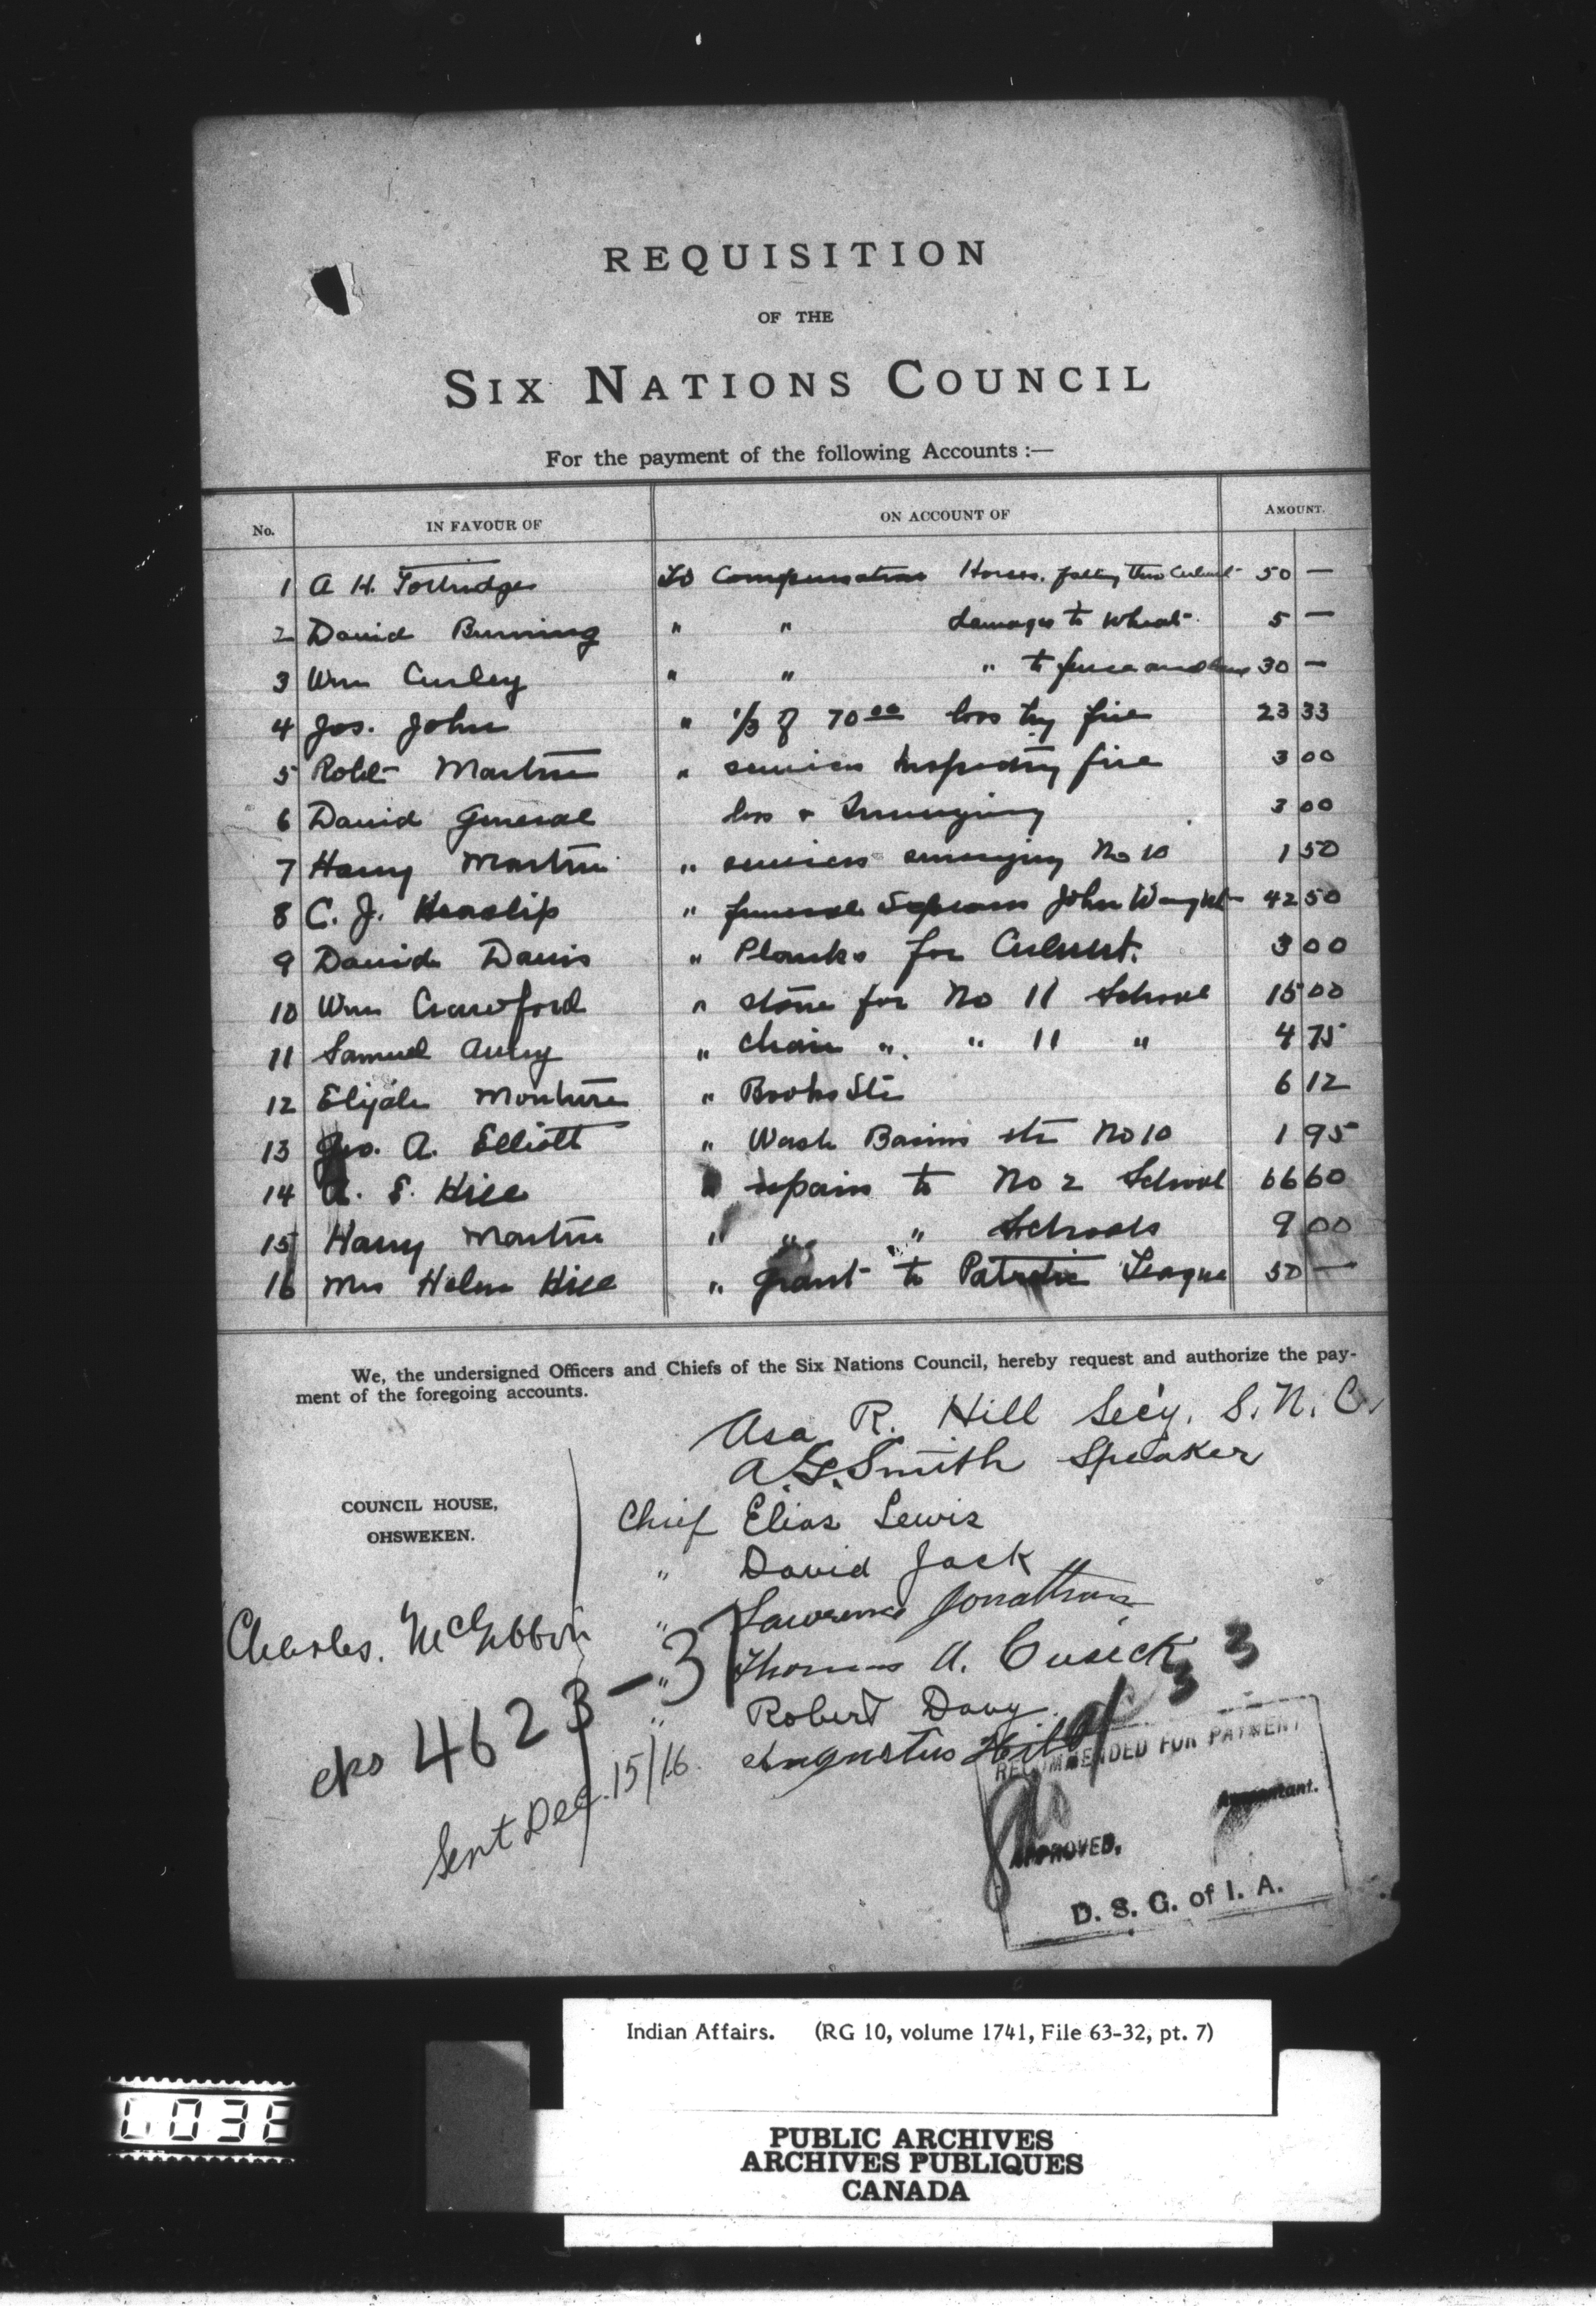 REQUISITION
OF THE
SIX NATIONS COUNCIL
For the payment of the following Accounts :—
No. IN FAVOUR OF ON ACCOUNT OF AMOUNT.
1 A H. To Compensation Horses, falling thro Culvert 50 —
2 David Burning " " damages to Wheat 5 —
3 Wm Curley " " " to fence and 30 —
4 Jos. John " 1/3 of 70 00 loss by fire 23 33
5 Robt Martin " services Inspecting fire 3 00
6 David General loss & 3 00
7 Harry Martin " services No 10 1 50
8 C. J. Heaslip " funeral John 42 50
9 David Davis " Planks for Culvert. 3 00
10 Wm Crawford " stone for No 11 School 15 00
11 Samuel " chair " " 11 " 4 75
12 Elijah Monture " Books Etc 6 12
13 A. Elliott " Wash Basins etc No 10 1 95
14 A. E. Hill " repairs to No 2 School 66 60
15 Harry Martin " " " Schools 9 00
16 Mrs Helen Hill " grant to Patriotic League 50 —
We, the undersigned Officers and Chiefs of the Six Nations Council, hereby request and authorize the pay-
ment of the foregoing accounts.
Asa R. Hill Sec'y. S. N. C.
A. G. Smith Speaker
COUNCIL HOUSE,
OHSWEKEN.
Chief Elias Lewis
" David Jack
" Lawrence Jonathan
Charles. McGibbon
" Thomas A. Cusick
" Robert Davy
" Augustus Hill
cks 4623-31
Sent Dec. 15/16
33
RECOMMENDED FOR PAYMENT
Accountant.
APPROVED.
D. S. G. of I. A.
Indian Affairs. (RG 10, volume 1741, File 63-32, pt. 7)
PUBLIC ARCHIVES
ARCHIVES PUBLIQUES
CANADA